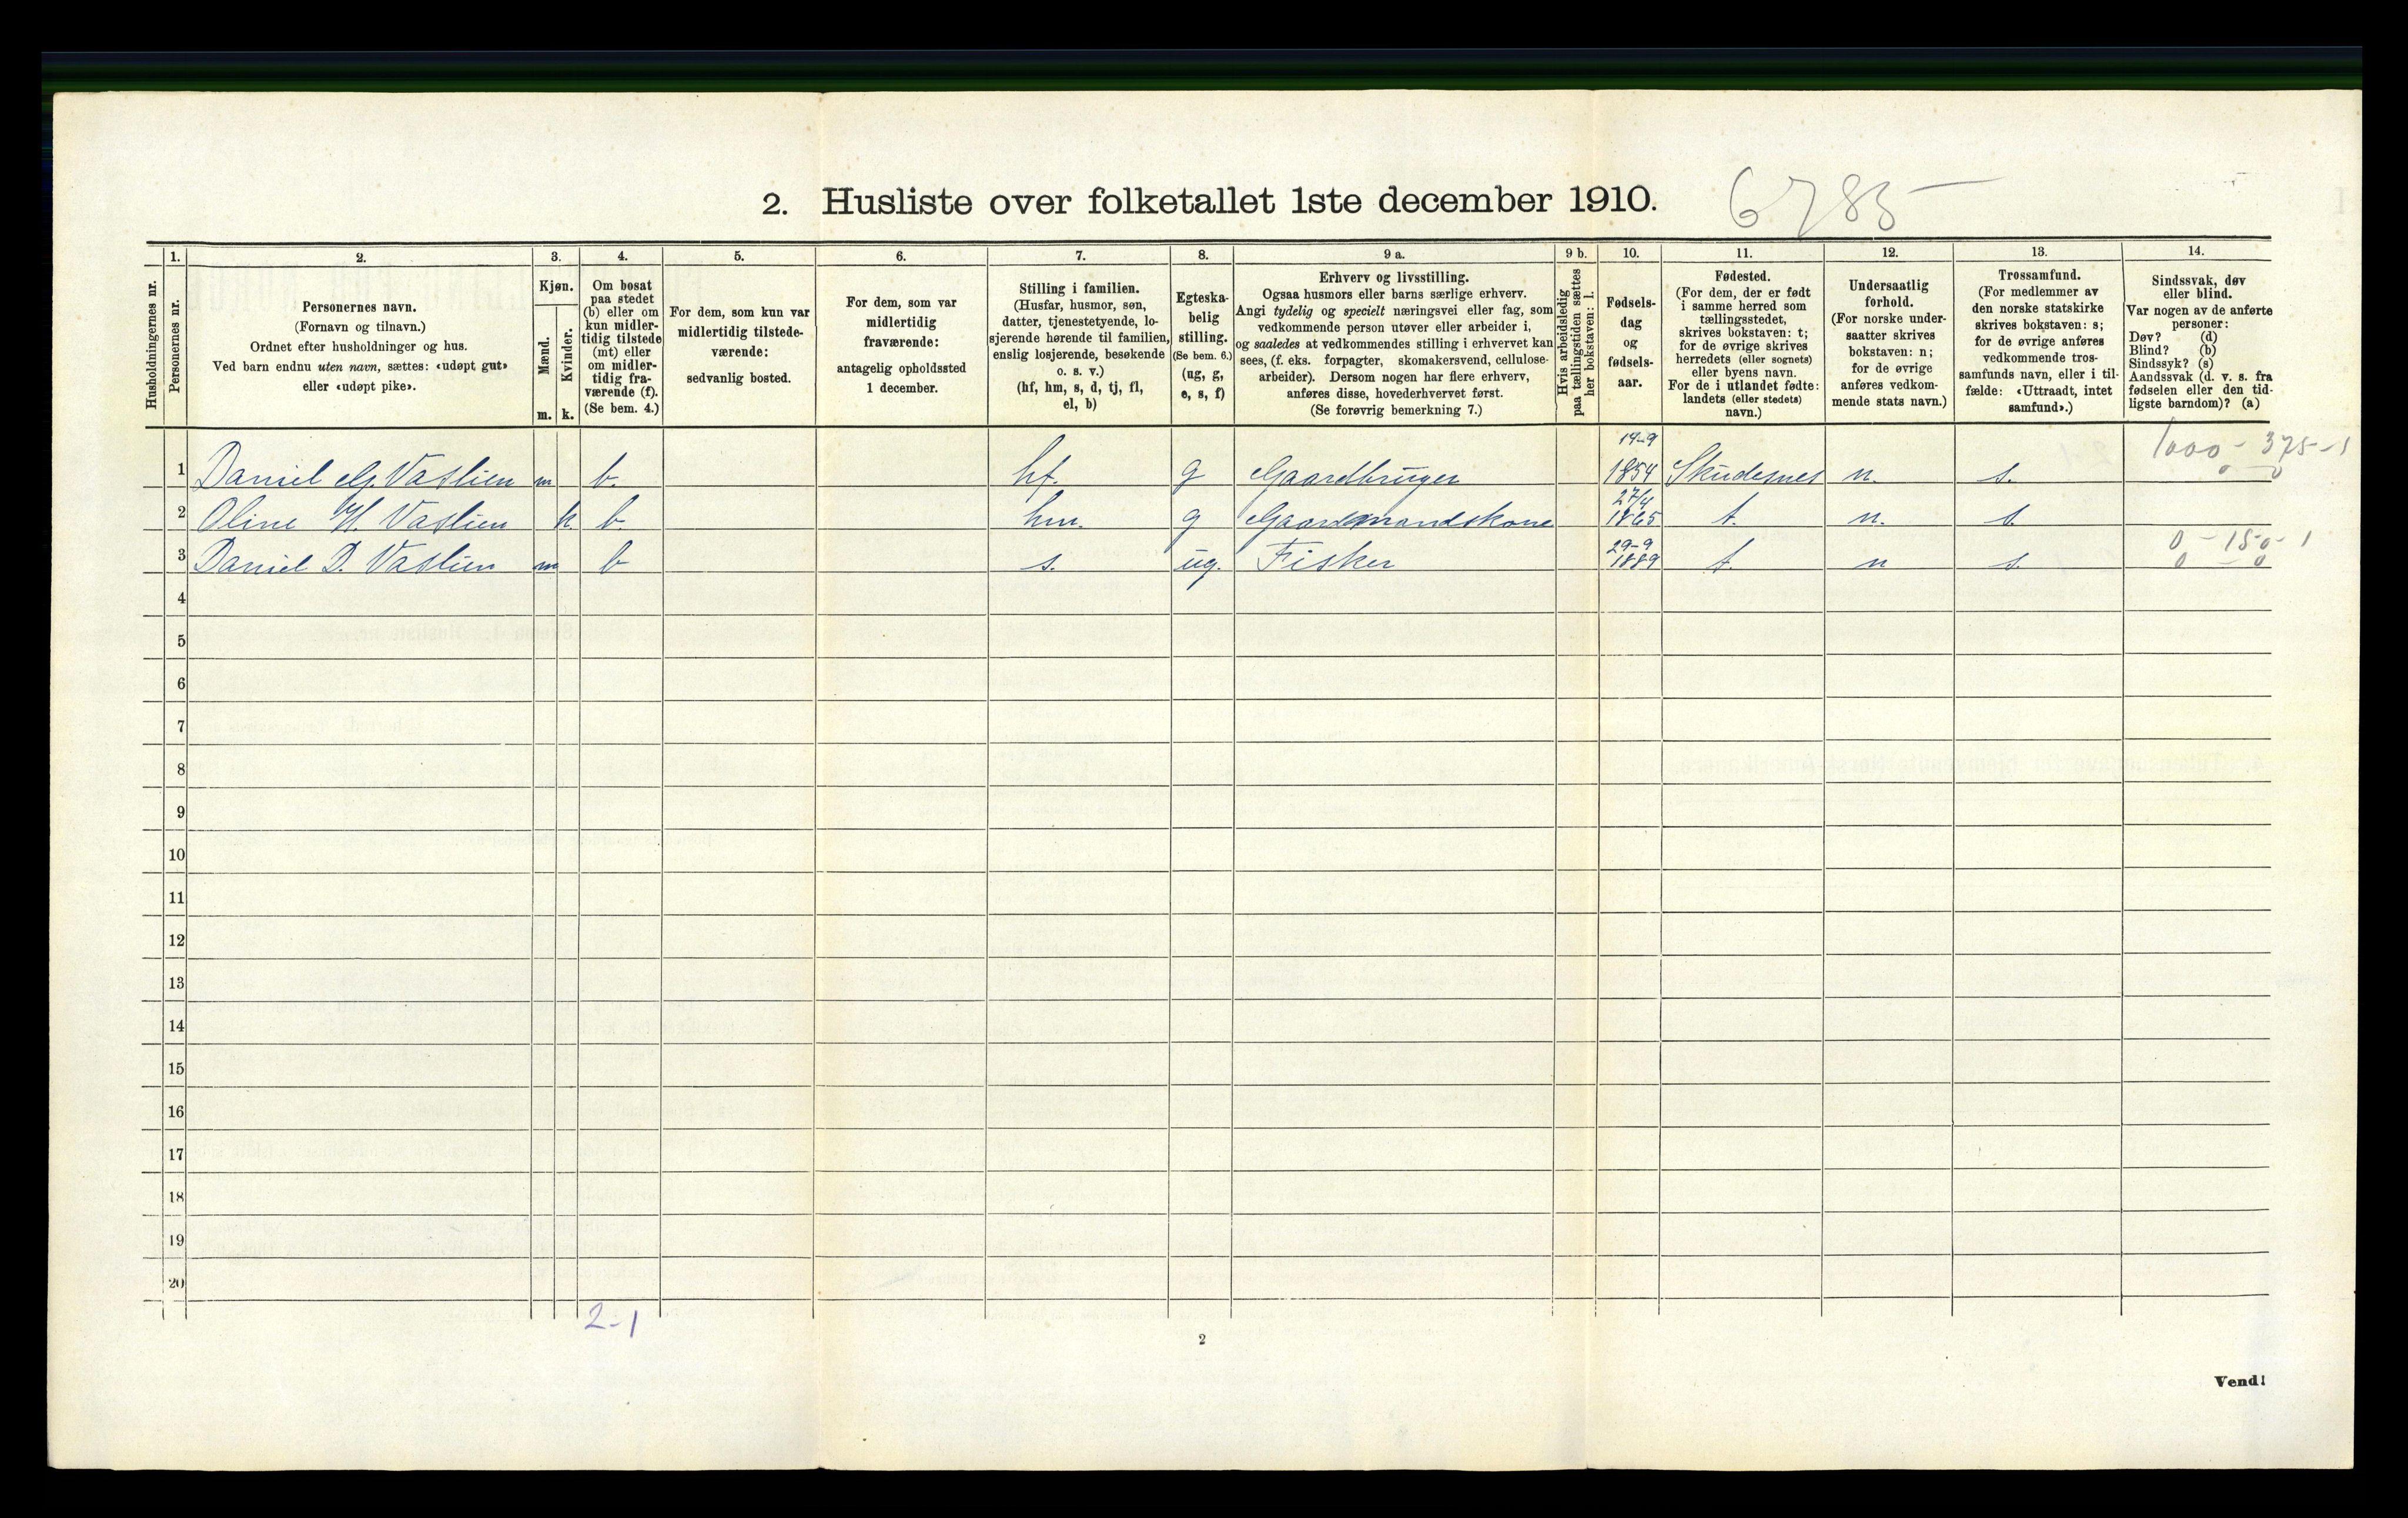 2. Husliste over folketallet 1ste december 1910.
6785
Husholdningernes nr.
1.
Personernes nr.
2.
Personernes navn.
(Fornavn og tilnavn.)
Ordnet efter husholdninger og hus.
Ved barn endnu uten navn, sættes: «udøpt gut»
eller «udøpt pike».
3.
Kjøn.
Mænd.
m.
Kvinder.
k.
4.
Om bosat
paa stedet
(b) eller om
kun midler-
tidig tilstede
(mt) eller
om midler-
tidig fra-
værende (f).
(Se bem. 4.)
5.
For dem, som kun var
midlertidig tilstede-
værende:
sedvanlig bosted.
6.
For dem, som var
midlertidig
fraværende:
antagelig opholdssted
1 december.
7.
Stilling i familien.
(Husfar, husmor, søn,
datter, tjenestetyende, lo-
sjerende hørende til familien,
enslig losjerende, besøkende
o. s. v.)
(hf, hm, s, d, tj, fl,
el, b)
8.
Egteska-
belig
stilling.
(Se bem. 6.)
(ug, g,
e, s, f)
9 a.
Erhverv og livsstilling.
Ogsaa husmors eller barns særlige erhverv.
Angi tydelig og specielt næringsvei eller fag, som
vedkommende person utøver eller arbeider i,
og saaledes at vedkommendes stilling i erhvervet kan
sees, (f. eks. forpagter, skomakersvend, cellulose-
arbeider). Dersom nogen har flere erhverv,
anføres disse, hovederhvervet først.
(Se forøvrig bemerkning 7.)
9 b.
Hvis arbeidsledig
paa tællingstiden sættes
her bokstaven: l.
10.
Fødsels-
dag
og
fødsels-
aar.
11.
Fødested.
(For dem, der er født
i samme herred som
tællingsstedet,
skrives bokstaven: t;
for de øvrige skrives
herredets (eller sognets)
eller byens navn.
For de i utlandet fødte:
landets (eller stedets)
navn.)
12.
Undersaatlig
forhold.
(For norske under-
saatter skrives
bokstaven: n;
for de øvrige
anføres vedkom-
mende stats navn.)
13.
Trossamfund.
(For medlemmer av
den norske statskirke
skrives bokstaven: s;
for de øvrige anføres
vedkommende tros-
samfunds navn, eller i til-
fælde: «Uttraadt, intet
samfund».)
14.
Sindssvak, døv
eller blind.
Var nogen av de anførte
personer:
Døv? (d)
Blind? (b)
Sindssyk? (s)
Aandssvak (d. v. s. fra
fødselen eller den tid-
ligste barndom)? (a)
14-9 1000 - 375 - 1
1 Daniel G. Vastlien m b. hf. g Gaardbruger 1854 Skudesnes n. s. 0 - 0
27/4
2 Oline H. Vastlien k b hm. g Gaardmandskone 1865 t. n. s.
29-9 0 - 150 - 1
3 Daniel D. Vastlien m b s. ug. Fisker 1889 t. n s. 0 - 0
4
5
6
7
8
9
10
11
12
13
14
15
16
17
18
19
20
2-1
2
Vend!